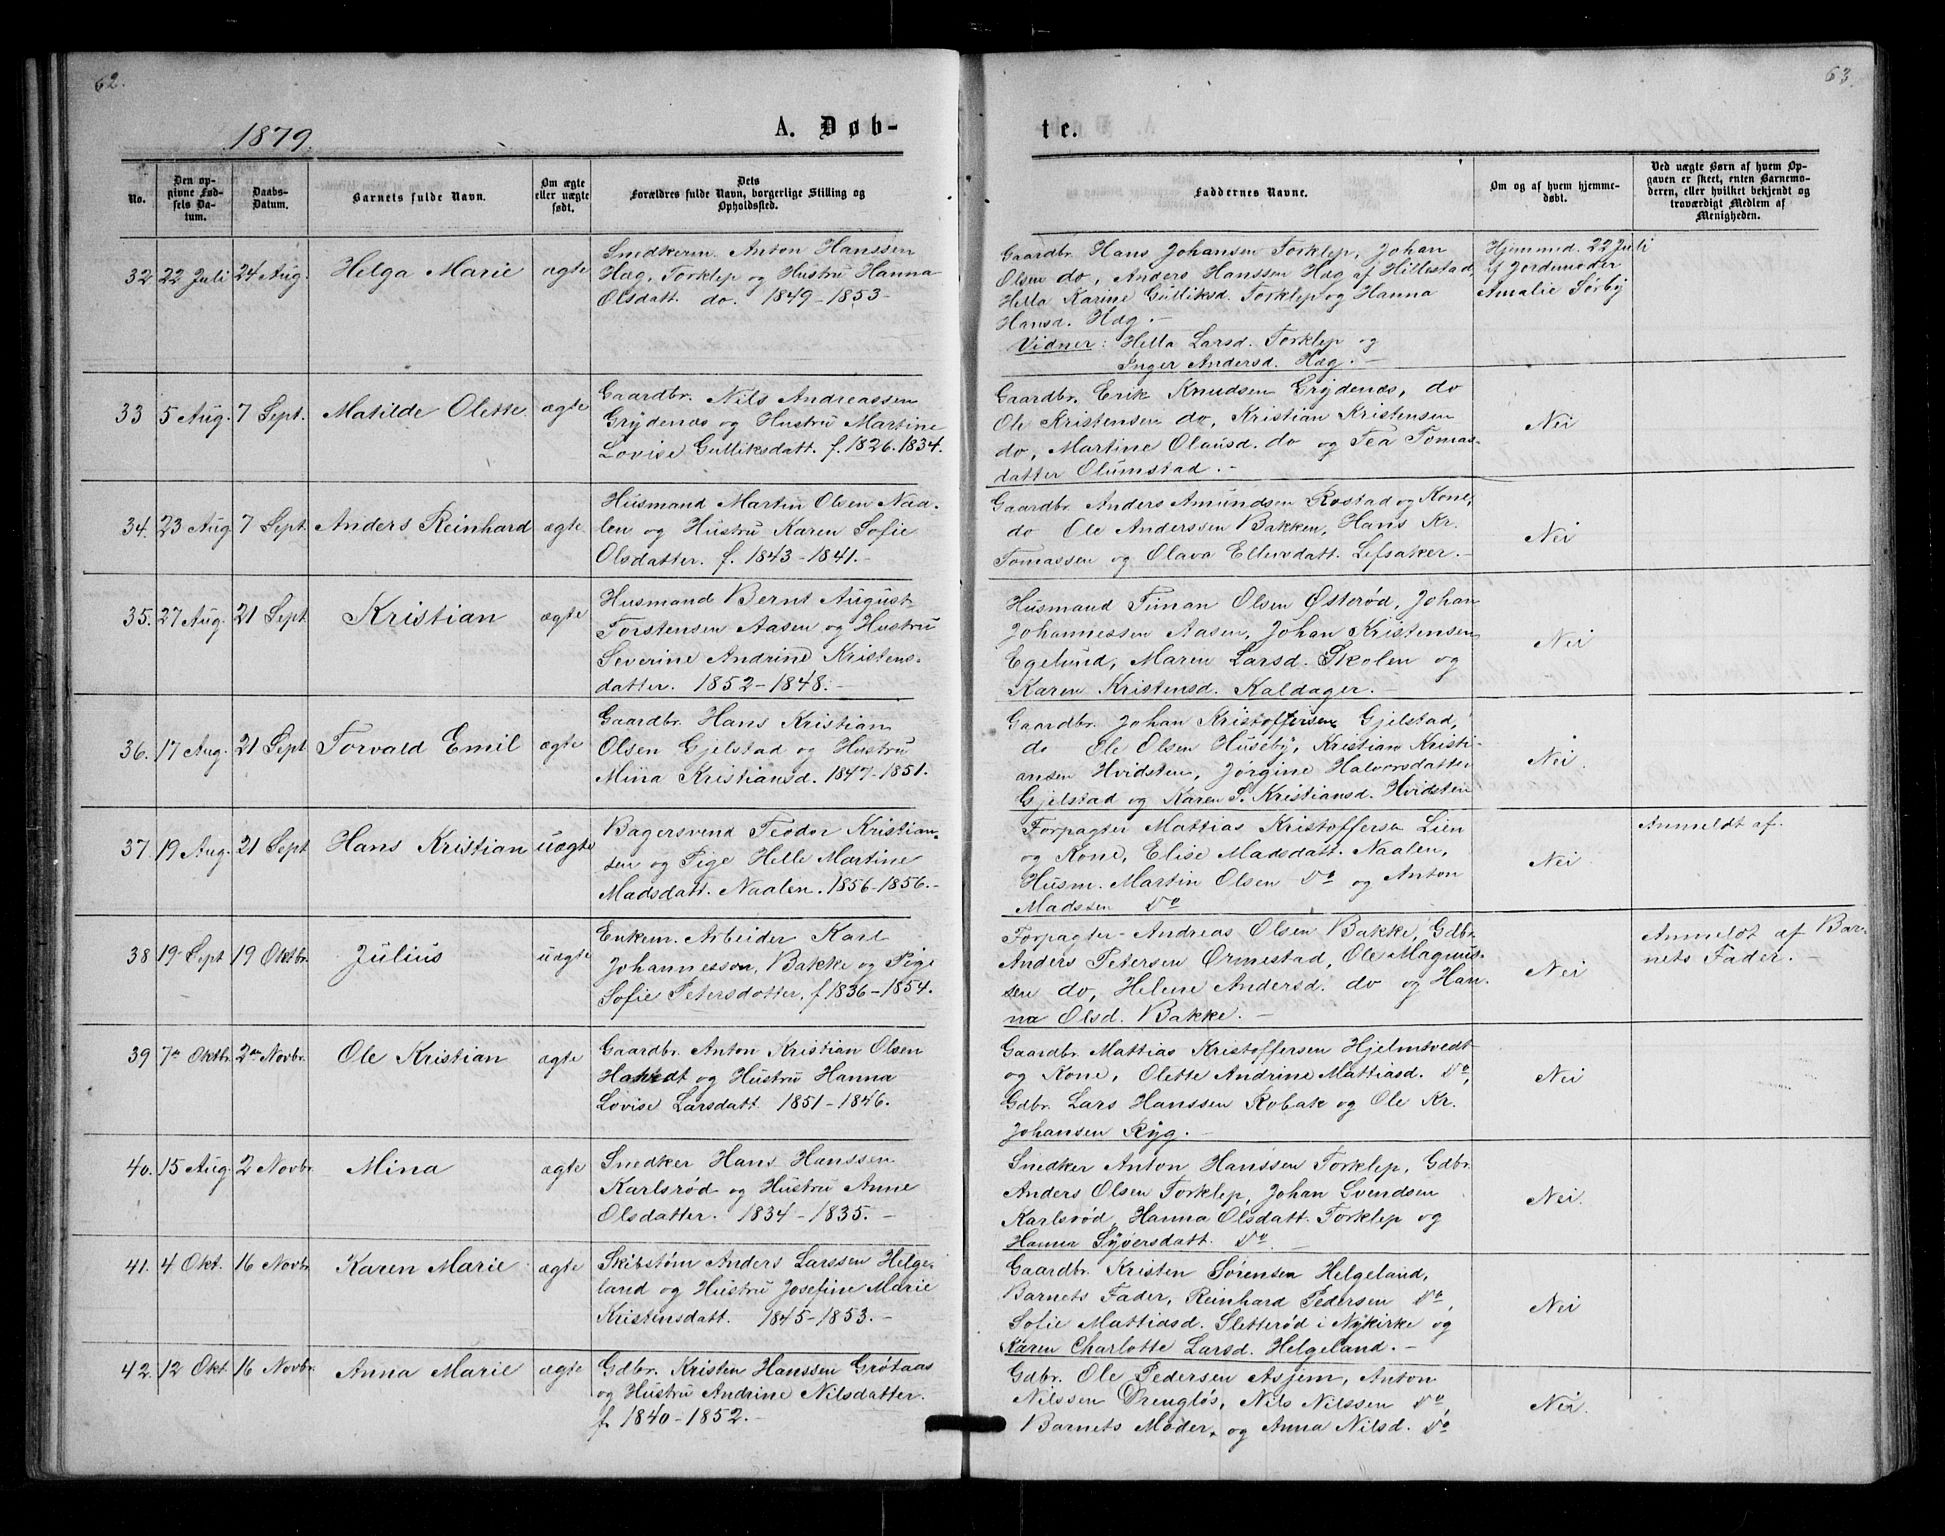 62.
63.
1879.
A. Døb-
te.
No.
Den op-
givne Fød-
sels Da-
tum.
Daabs-
Datum.
Barnets fulde Navn.
Om ægte
eller uægte
født.
Dets
Forældres fulde Navn, borgerlige Stilling og
Opholdsted.
Faddernes Navne.
Om og af hvem hjemme-
døbt.
Ved uægte Børn af hvem Op-
gaven er skeet, enten Barnemo-
deren, eller hvilket bekjendt og
troværdigt Medlem af
Menigheden.
32 22 Juli 24 Aug. Helga Marie ægte
Snedkerm. Anton Hanssen
Hæg, Torklep og Hustru Hanna
Olsdatt. do. 1849-1853-
Gaardbr. Hans Johansen Torklep, Johan
Olsen do, Anders Hanssen Hæg af Hillestad,
Hella Karine Gulliksd. Torklep og Hanna
Hansd. Hæg.-
Vidner: Hella Larsd. Torklep og
Inger Andersd. Hæg.-
Hjemmed. 22 Juli
af Jordemoder
Amalie Sørby
33 5 Aug. 7 Sept. Matilde Olette ægte
Gaardbr. Nils Andreassen
Grydenæs og Hustru Martine
Lovise Gulliksdatt. f. 1826. 1834.
Gaardbr. Erik Knudsen Grydenæs, do
Ole Kristensen do, Kristian Kristensen
do, Martine Olausd. do og Tea Tomas-
datter Olumstad.-
Nei
34. 23 Aug 7 Sept. Anders Reinhard ægte
Husmand Martin Olsen Naa-
len og Hustru Karen Sofie
Olsdatter. f. 1843-1841.-
Gaardbr. Anders Amundsen Rostad og Kone,
do Ole Anderssen Bakken, Hans Kr.
Tomassen og Olava Ellevsdatt. Lefsaker.-
Nei
35. 27 Aug. 21 Sept Kristian ægte
Husmand Bernt August
Torstensen Aasen og Hustru
Severine Andrine Kristens-
datter. 1852-1848.-
Husmand Timan Olsen Østerød, Johan
Johannessen Aasen, Johan Kristensen
Egelund, Maren Larsd. Skolen og
Karen Kristensd. Kaldager.-
Nei
36. 17 Aug. 21 Sept Torvald Emil ægte
Gaardbr. Hans Kristian
Olsen Gjelstad og Hustru
Mina Kristiansd. 1847-1851.
Gaardbr. Johan Kristoffersen Gjelstad,
do Ole Olsen Huseby, Kristian Kristi-
ansen Hvidsten, Jørgine Halvorsdatter
Gjelstad og Karen S. Kristiansd. Hvidsten
Nei.
37. 19 Aug. 21 Sept Hans Kristian uægte
Bagersvend Teodor Kristian-
sen og Pige Helle Martine
Madsdatt. Naalen. 1856-1856.-
Forpagter Mattias Kristoffersen Lien
og Kone, Elise Madsdatt. Naalen,
Husm. Martin Olsen Do og Anton
Madssen Do
Nei
Anmeldt af.
38 19 Sept 19 Oktbr. Julius uægte
Enkem. Arbeider Karl
Johannesson, Bakke og Pige
Sofie Petersdatter, f 1836-1854.
Forpagter Andreas Olsen Bakke, Gdbr.
Anders Petersen Ormestad, Ole Magnus-
sen do, Helene Andersd. do og Han-
na Olsd. Bakke.-
Nei
Anmeldt af Bar-
nets Fader.-
39 7de Oktbr. 2den Novbr. Ole Kristian ægte
Gaardbr. Anton Kristian Olsen
og Hustru Hanna
Lovise Larsdatt. 1851-1846.
Gaardbr. Mattias Kristoffersen Hjelmtvedt
og Kone, Olette Andrine Mattiasd. Do,
Gdbr. Lars Hanssen Robak og Ole Kr.
Johansen Ryg.-
Nei
40. 15 Aug. 2 Novbr. Mina ægte
Snedker Hans Hanssen
Karlsrød og Hustru Anne
Olsdatter. 1834-1835.-
Snedker Anton Hanssen Torklep, Gdbr.
Anders Olsen Torklep, Johan Svendsen
Karlsrød, Hanna Olsdatt. Torklep og
Hanna Syversdatt. Do -
Nei.
41. 4 Okt. 16 Novbr. Karen Marie ægte
Skibstøm. Anders Larssen Helge-
land og Hustru Josefine Marie
Kristensdatt. 1845-1853.-
Gaardbr. Kristen Sørensen Helgeland,
Barnets Fader, Reinhard Pedersen Do,
Sofie Mattiasd. Sletterød i Nykirke og
Karen Charlotte Larsd. Helgeland.-
Nei
42. 12 Okt. 16 Novbr. Anna Marie ægte
Gdbr. Kristen Hanssen Grøtaas
og Hustru Andrine Nilsdatter.
f. 1840-1852.-
Gdbr. Ole Pedersen Asjem, Anton
Nilssen Drengløs, Nils Nilssen Do,
Barnets Moder, og Anna Nilsd. Do
Nei.